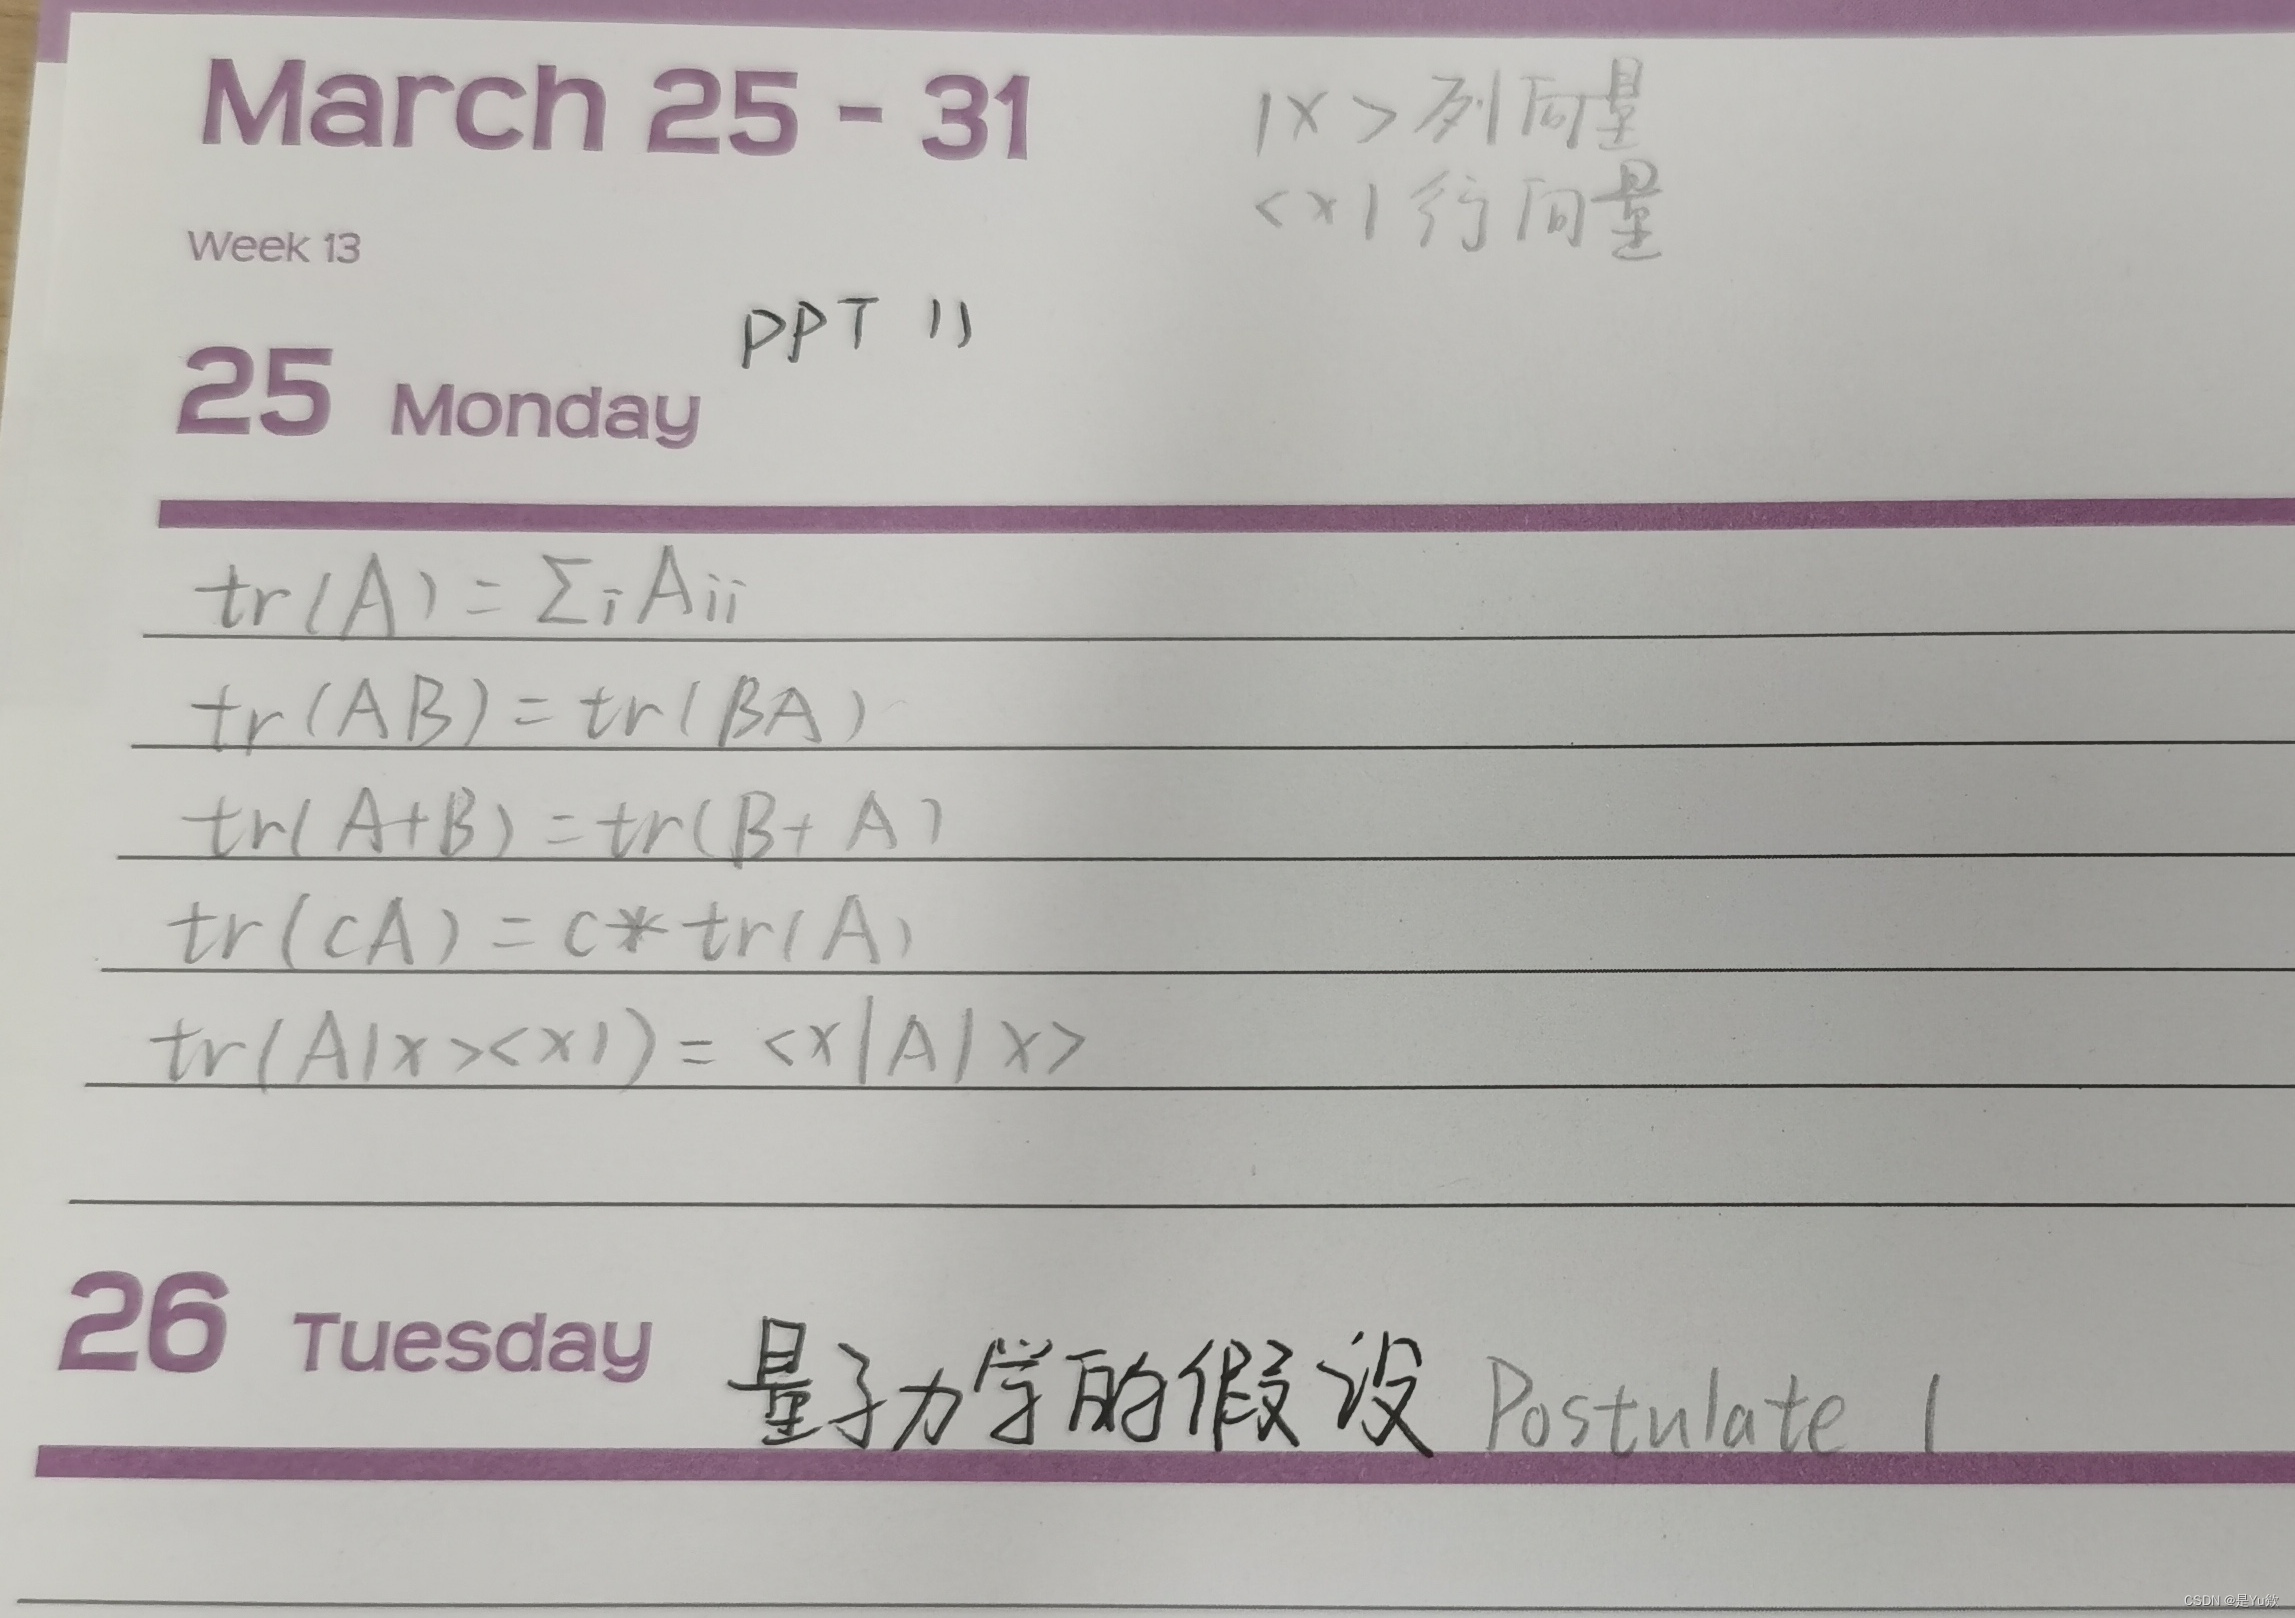 March 25 - 31
|x> 列向量
<x| 行向量
Week 13
PPT 11
25 Monday
tr(A) = Σi Aii
tr(AB) = tr(BA)
tr(A+B) = tr(B+A)
tr(cA) = c*tr(A)
tr(A|x><x|) = <x|A|x>
26 Tuesday 量子力学的假设 Postulate 1
CSDN @是Yu欸